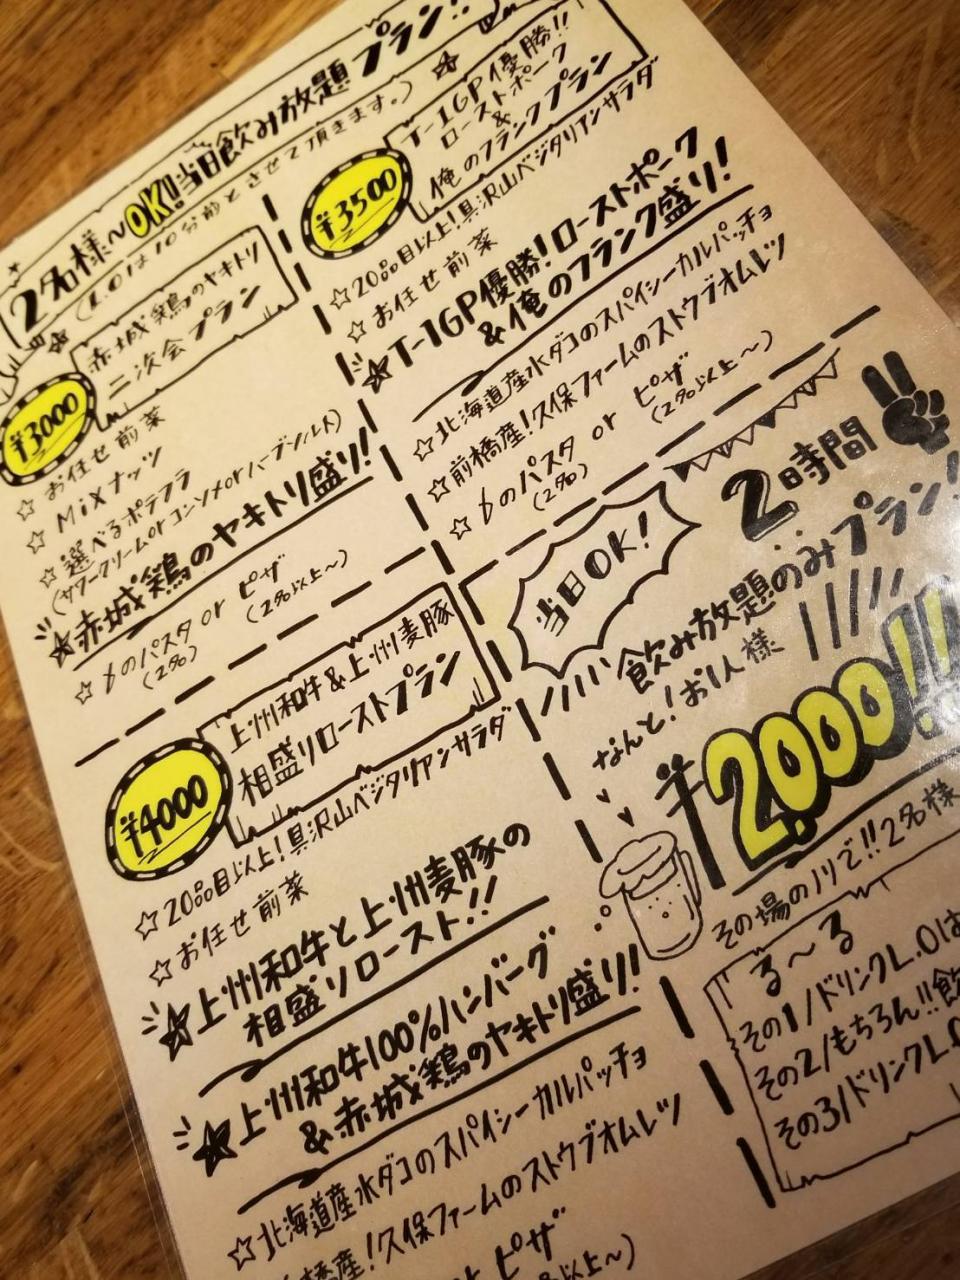 2名様〜OK!!当日飲み放題プラン!!
(L.Oは10分前とさせて頂きます。)
¥3000
赤城鶏のヤキトリ
二次会プラン
☆お任せ前菜
☆MiXナッツ
☆選べるポテフラ
(サワークリームorコンソメorハーブソルト)
★赤城鶏のヤキトリ盛り!
☆〆のパスタ or ピザ
(2名) (2名以上〜)
¥3500
T-1GP優勝!!
ローストポーク
&
俺のフランクプラン
☆20品目以上!具沢山ベジタリアンサラダ
☆お任せ前菜
★T-1GP優勝!ローストポーク
&俺のフランク盛り!
☆北海道産水ダコのスパイシーカルパッチョ
☆前橋産!久保ファームのストウブオムレツ
☆〆のパスタ or ピザ
(2名) (2名以上〜)
¥4000
上州和牛&上州麦豚
相盛りローストプラン
☆20品目以上!具沢山ベジタリアンサラダ
☆お任せ前菜
★上州和牛と上州麦豚の
相盛りロースト!!
★上州和牛100%ハンバーグ
&赤城鶏のヤキトリ盛り!
☆北海道産水ダコのスパイシーカルパッチョ
橋産!久保ファームのストウブオムレツ
or ピザ
以上〜)
当日OK!
2時間
飲み放題のみプラン!
なんと!お1人様
¥2,000!!
その場のノリで!!2名様
る〜る
その1/ドリンクL.Oは
その2/もちろん!!飲
その3/ドリンクL.O